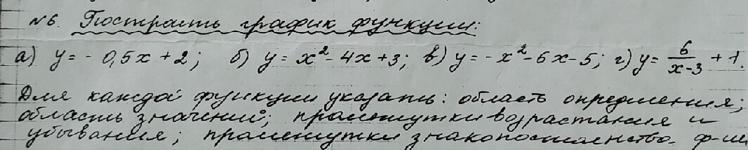 №6. Построить график функции:
а) y = - 0,5x + 2; б) y = x² - 4x + 3; в) y = - x² - 6x - 5; г) y = 6/(x-3) + 1.
Для каждой функции указать: область определения;
область значений; промежутки возрастания и
убывания; промежутки знакопостоянства ф-ии